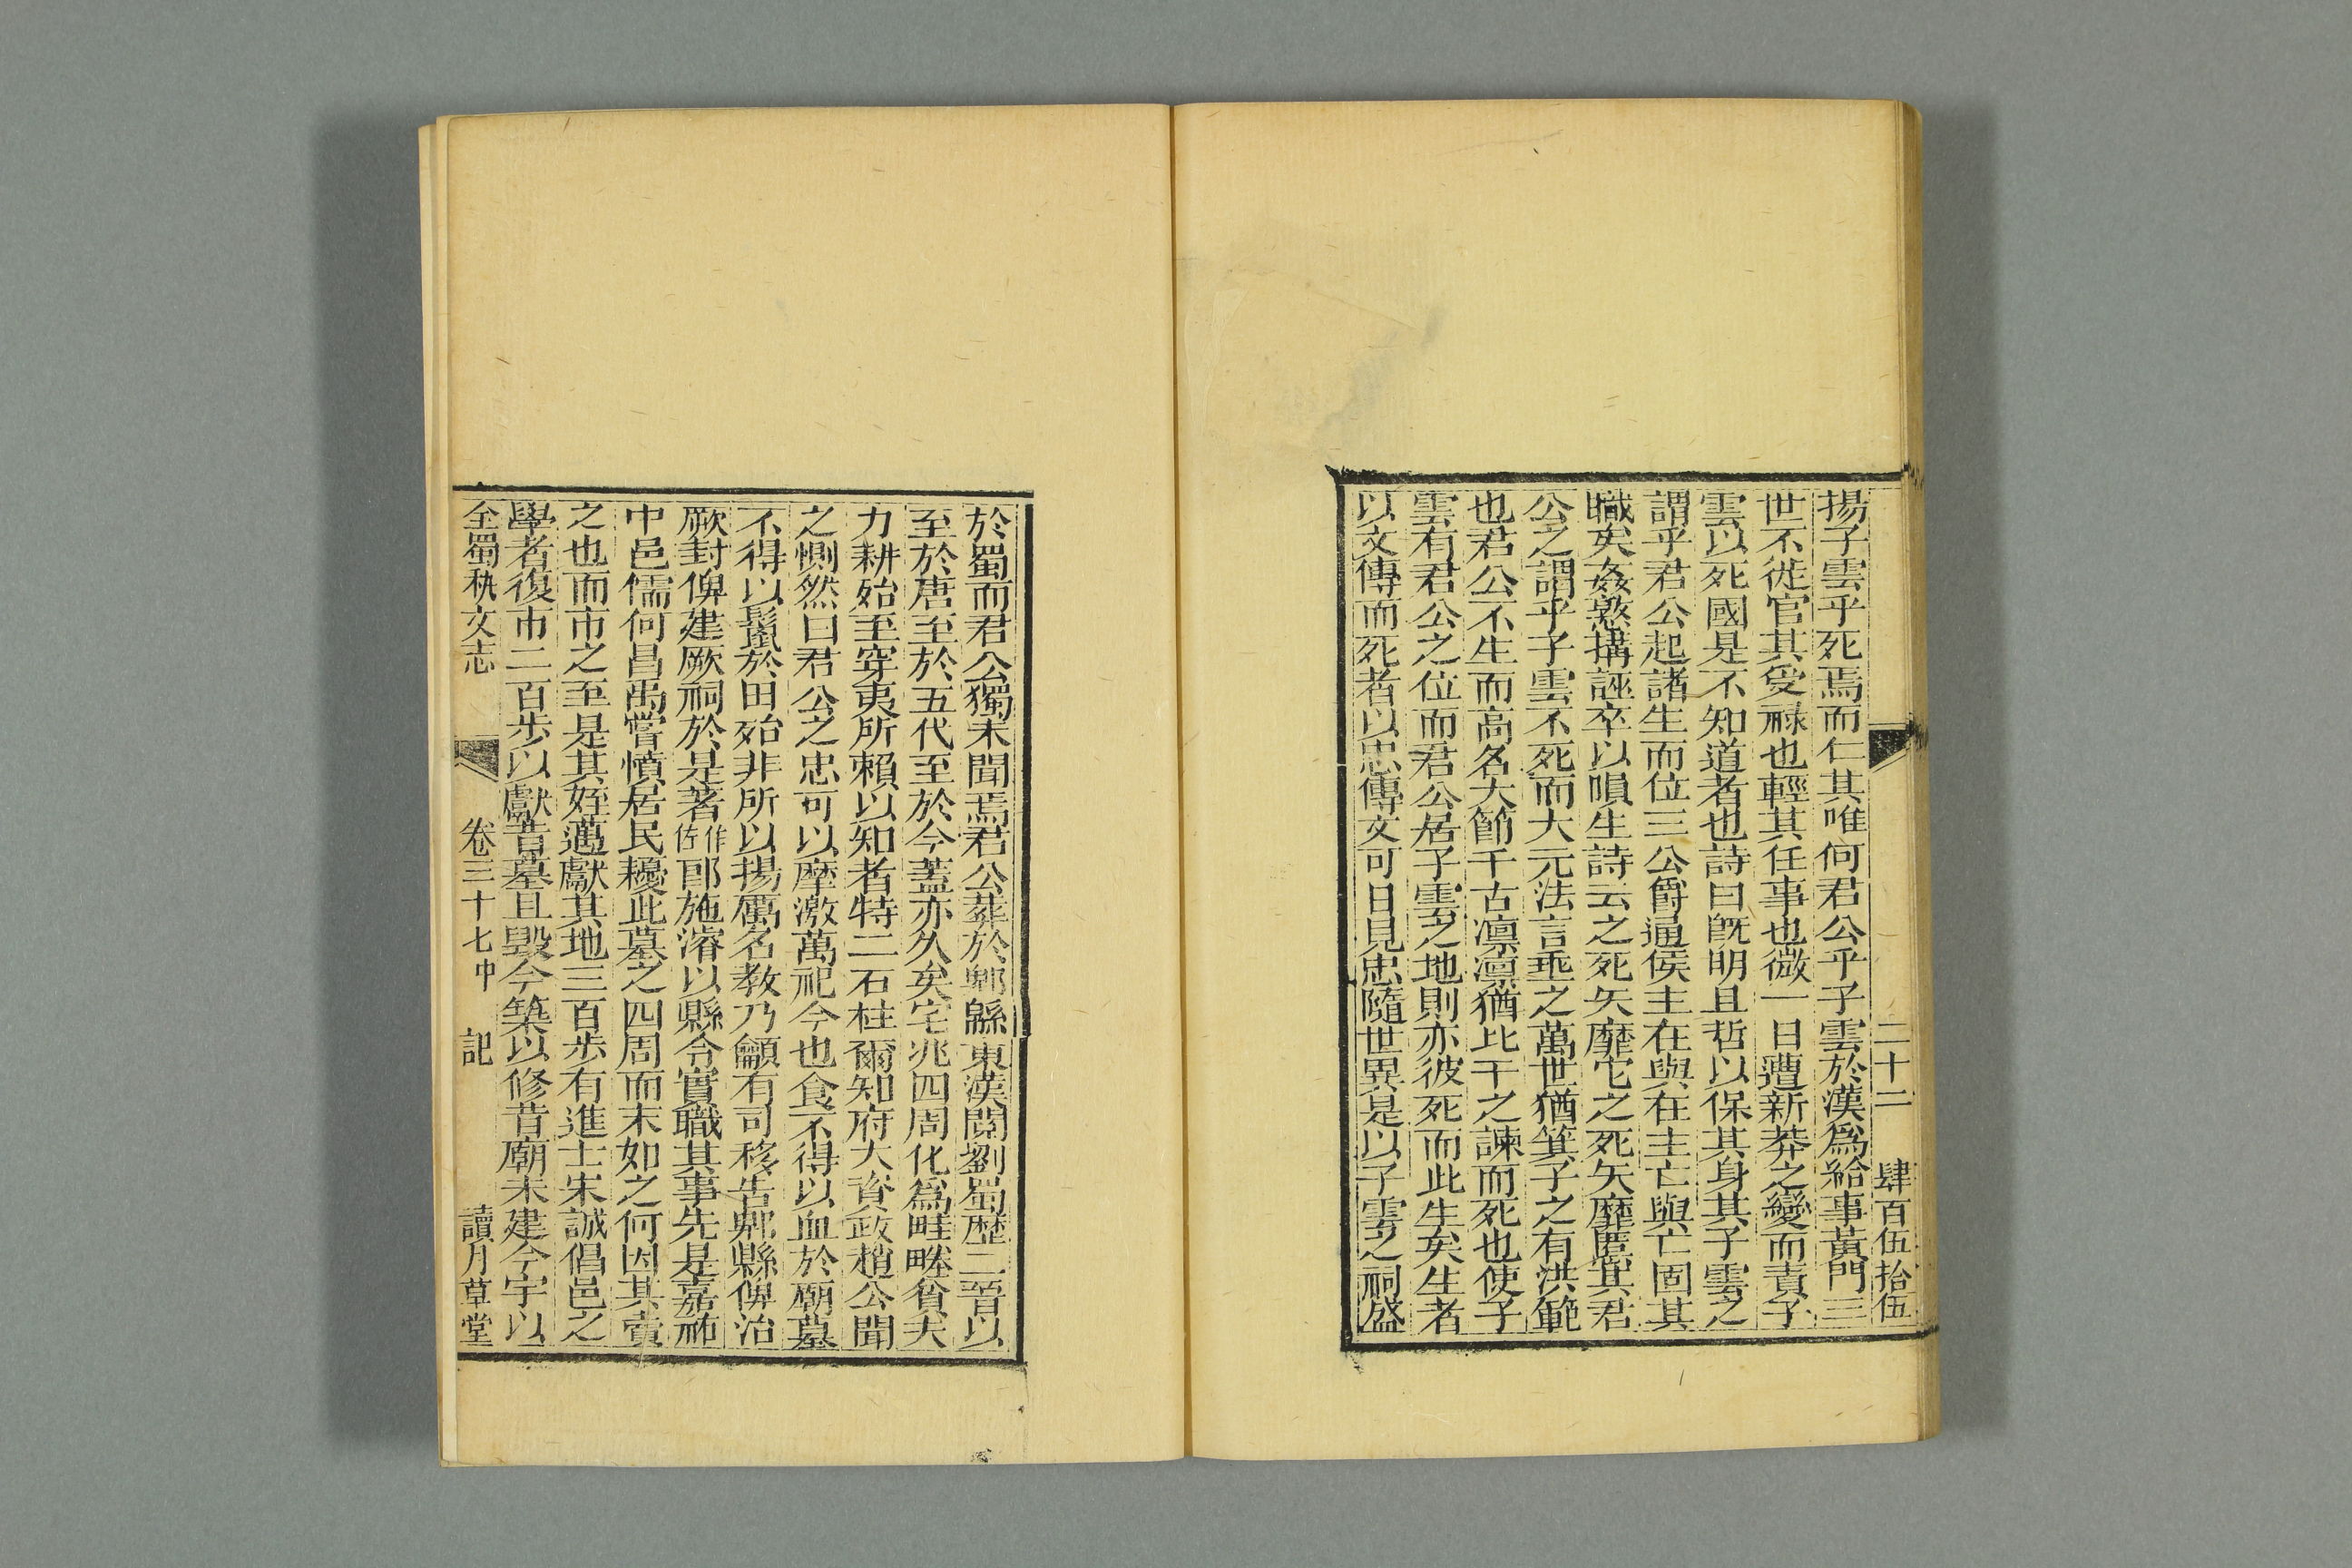 二十二　肆百伍拾伍
揚子雲乎死焉而仁其唯何君公乎子雲於漢爲給事黃門三
世不徙官其受祿也輕其任事也微一日遭新莽之變而責子
雲以死國是不知道者也詩曰旣明且哲以保其身其子雲之
謂乎君公起諸生而位三公爵通侯主在與在主亡與亡固其
職矣姦慝搆誣卒以嗔生詩云之死矢靡它之死矢靡慝其君
公之謂乎子雲不死而大元法言垂之萬世猶箕子之有洪範
也君公不生而高名大節千古凛凛猶比干之諫而死也使子
雲有君公之位而君公居子雲之地則亦彼死而此生矣生者
以文傳而死者以忠傳文可日見忠隨世異是以子雲之祠盛
於蜀而君公獨未聞焉君公葬於郫縣東漢閱劉蜀歷二晉以
至於唐至於五代至於今蓋亦久矣宅兆四周化爲畦畻貧夫
力耕始至穿夷所賴以知者特二石柱爾知府大資政趙公聞
之惻然曰君公之忠可以摩激萬祀今也食不得以血於廟墓
不得以鬣於田殆非所以揚厲名教乃籲有司移告郫縣俾治
厥封俾建厥祠於是著作佐郎施濬以縣令實職其事先是嘉祐
中邑儒何昌禹嘗憤居民耰此墓之四周而末如之何因其賣
之也而市之至是其姪藎獻其地三百步有進士宋誠倡邑之
學者復市二百步以獻昔墓且毀今築以修昔廟未建今宇以
全蜀秇文志　卷三十七中　記　讀月草堂